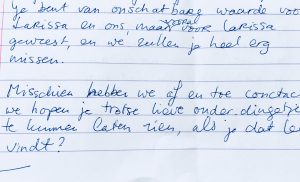 Je bent van onschatbare waarde voo
Larissa en ons, maar vooral voor Larissa
geweest, en we zullen je heel erg
missen.
Misschien hebben we af en toe contac
we hopen je trotse lieve onder dingetje
te kunnen laten zien, als je dat le
vindt?